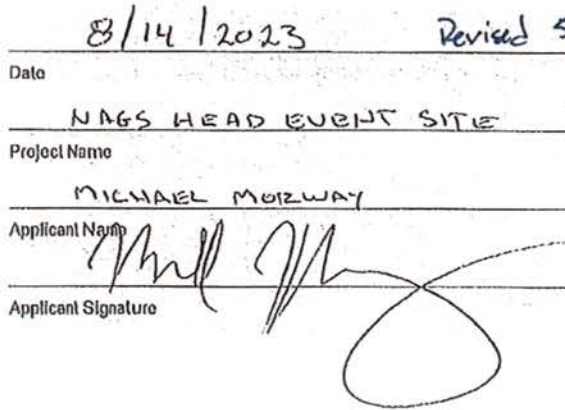 8/14/2023 Revised 5
Date
NAGS HEAD EVENT SITE
Project Name
MICHAEL MORZWAY
Applicant Name
Applicant Signature